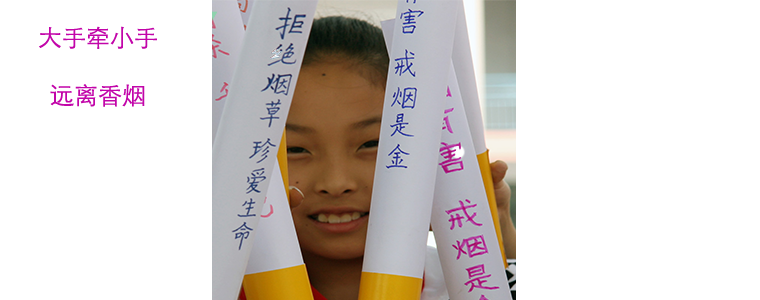 大手牵小手
远离香烟
拒绝烟草 珍爱生命
害 戒烟是金
有害 戒烟是